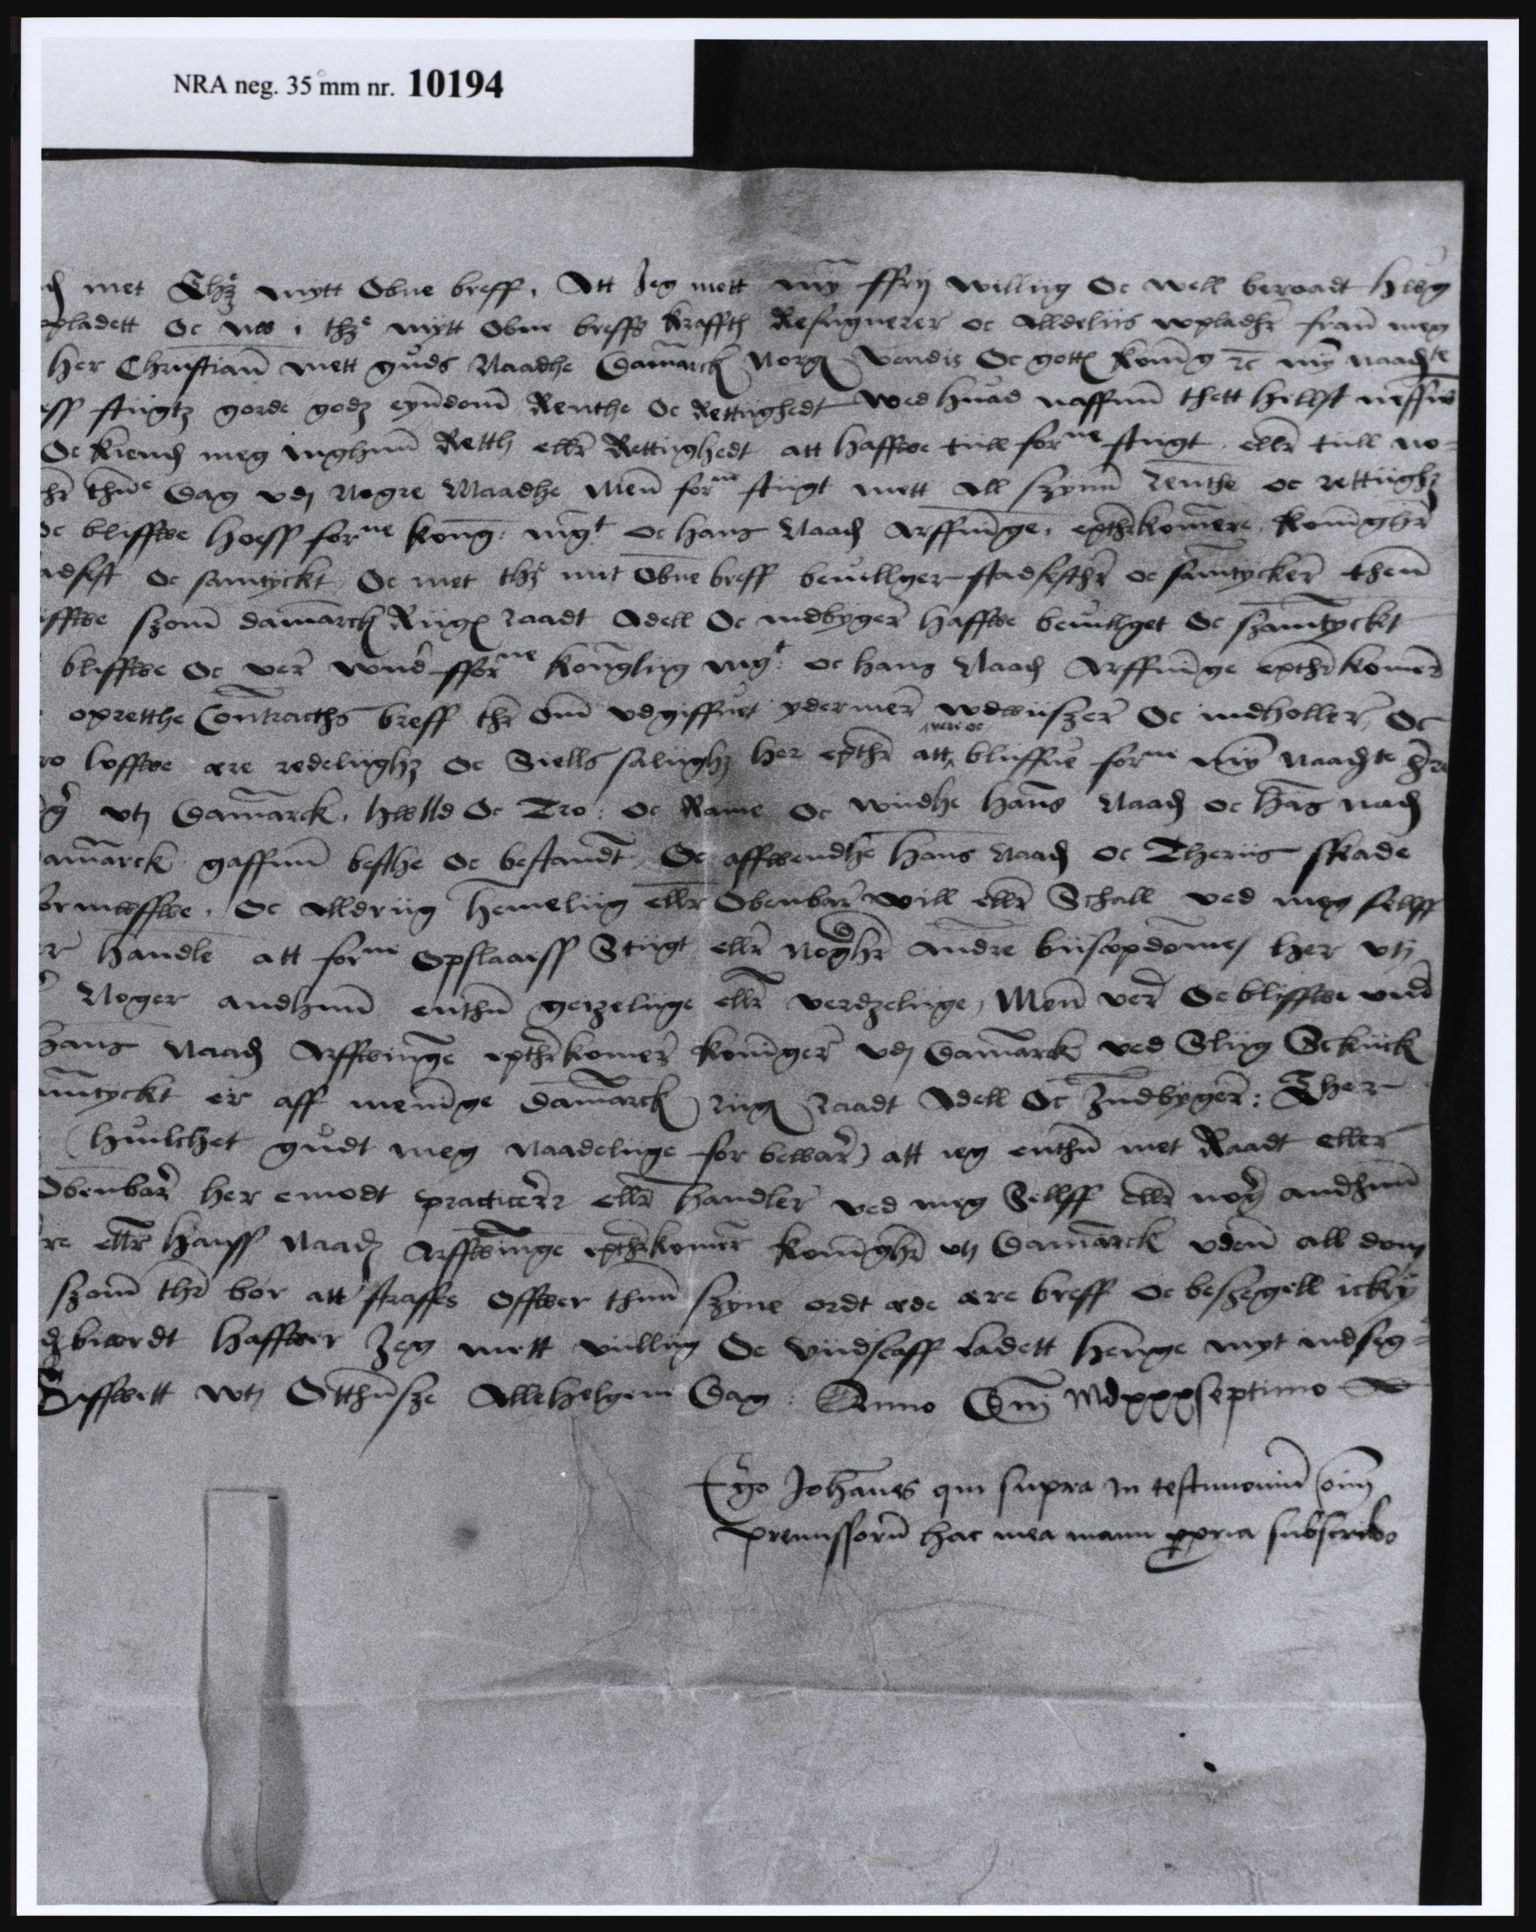 NRA neg. 35 mm nr. 10194
met thz mytt obne breff. Att Jeg mett myn ffrij willиg oc well beraadt hwg
pladett Oc nw i thz mytt obne breffs krafft Resignerer oc alldeliis wpladhr fran meg
her Christiann mett guds Naadhe Danmarck Norg Vendis Oc gott koning rc myn naadste
ess stigtz gorde godz eyndom Renthe Oc Rettighedt wed huad naffnn thett hellst neffnis
Oc kiend meg inghnn Retth ellr Rettighedt att haffwe till forne stigt ellr till no-
thne Dag vdj nogre Maadhe Men forne stigt mett all szynn renthe oc rettiighz
oc bliffwe hoess forne kong: mgt oc hans Naad Arffuinge, epthrkomere koninghr
adfest oc samtyckt Oc met thz mit obne breff beuillger stadfesthr oc samtycker them
iffwe szom danmarck Riigs raadt Adell Oc indbyger haffwe beuilget Oc szamtyckt
bliffwe Oc ver wnd fforne konglig mgt: oc hans Naad Arffuinge epthrkomer
opretthe Contracths breff thr om vdgiffuet ydermer wdwiiszer Oc indholler Oc
ro loffwe ære redelighz Oc Siells saliighz her epthr att were oc bliffue forne myn naadste hre
vtj Danmarck, hwlld Oc Tro: oc Rame oc widhe hans Naad oc hans nad
anmarck gaffnn besthe Oc bestandt Oc affwendhe hans naad oc Theriis skade
ormwffwe, Oc alldriig hemeliig ellr Obenbar will ellr Schall ved meg sellff
er handle att forne Opslaaess Stiigt ellr noghr andre biscopdomes her vtj
Noger andhnn enthn geizeliige ellr verdzeliige, Men ver Oc bliffwe vnd
hans Naad Arffwinge epthrkomer koninger vdj Danmarck ved Sliig Schiick
amtyckt er aff meninge Danmarck riigs Raadt Adell Oc Indbyger: Ther
(huilchet gudt meg naadeliige for bewar) att ieg enthn met Raadt eller
Obenbar her emodt practicerer ellr handler ved meg Sellff ellr nogr andhnn
re ellr hanss Naad Arffwinge epthrkomer koninghr vtj Danmarck vden all dom
szom thr bor att straffes Offwer thnn szyne ordt ede ære breff oc beszegell ickj
biwrdt haffwer Jeg mett villiig Oc viidscaff ladett henge myt indseg-
Giffwett wtj Otthensze Allehelgene Dag: Anno Dni Mdxxxseptimo
Ego Johannes qui supra in testimonium omnium
premissorum hac mea manu propria subscribo